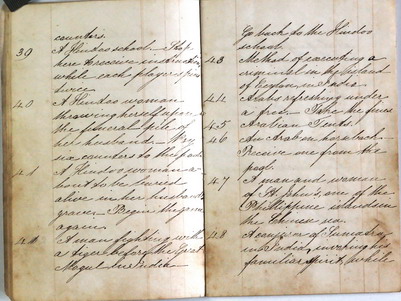 counters.
39 A Hindoo school. Stop
here to receive instruction
while each player spins
twice.
40 A Hindoo woman
throwing herself upon
the funeral pile of
her husband. Pay
six counters to the pool.
41 A Hindoo woman a-
bout to be buried
alive in her husband's
grave. Begin the game
again.
42 A man fighting with
a tiger before the Great
Mogul in India.
Go back to the Hindoo
school.
43 Method of executing a
criminal in the island
of Ceylon, in India
44 Arabs refreshing under
a tree. Take no fines
45 Arabian Tents.
46 An Arab on horseback.
Receive one from the
pool.
47 A man and woman
of St. John's, one of the
Philippine islands in
the Chinese sea.
48 A conjuror of Sumatra,
in India, invoking his
familiar spirit, (while